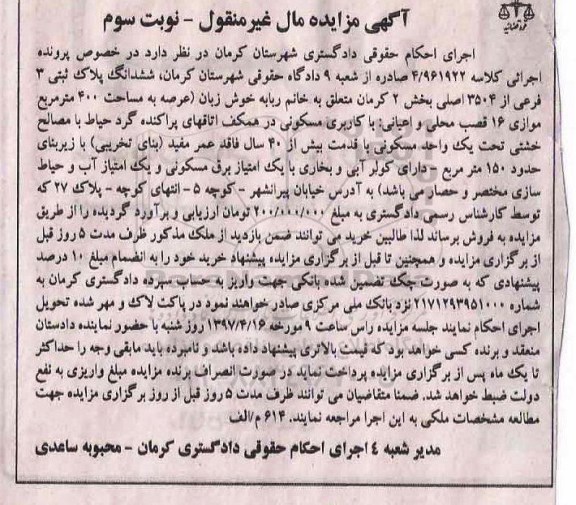 آگهی مزایده مال غیرمنقول - نوبت سوم
اجرای احکام حقوقی دادگستری شهرستان کرمان در نظر دارد در خصوص پرونده
اجرائی کلاسه ۴/۹۶۱۹۲۲ صادره از شعبه ۹ دادگاه حقوقی شهرستان کرمان، ششدانگ پلاک ثبتی ۳
فرعی از ۳۵۰۴ اصلی بخش ۲ کرمان متعلق به خانم ربابه خوش زبان (عرصه به مساحت ۴۰۰ مترمربع
موازی ۱۶ قصب محلی و اعیانی: با کاربری مسکونی در همکف اتاقهای پراکنده گرد حیاط با مصالح
خشتی تحت یک واحد مسکونی با قدمت بیش از ۴۰ سال فاقد عمر مفید (بنای تخریبی) با زیربنای
حدود ۱۵۰ متر مربع - دارای کولر آبی و بخاری با یک امتیاز برق مسکونی و یک امتیاز آب و حیاط
سازی مختصر و حصار می باشد) به آدرس خیابان پیرانشهر - کوچه ۵ - انتهای کوچه - پلاک ۲۷ که
توسط کارشناس رسمی دادگستری به مبلغ ۲۰۰/۰۰۰/۰۰۰ تومان ارزیابی و برآورد گردیده را از طریق
مزایده به فروش برساند لذا طالبین خرید می توانند ضمن بازدید از ملک مذکور ظرف مدت ۵ روز قبل
از برگزاری مزایده و همچنین تا قبل از برگزاری مزایده پیشنهاد خرید خود را به انضمام مبلغ ۱۰ درصد
پیشنهادی که به صورت چک تضمین شده بانکی جهت واریز به حساب سپرده دادگستری کرمان به
شماره ۲۱۷۱۲۹۳۹۵۱۰۰۰ نزد بانک ملی مرکزی صادر خواهند نمود در پاکت لاک و مهر شده تحویل
اجرای احکام نمایند جلسه مزایده راس ساعت ۹ مورخه ۱۳۹۷/۴/۱۶ روز شنبه با حضور نماینده دادستان
منعقد و برنده کسی خواهد بود که قیمت بالاتری پیشنهاد داده باشد و نامبرده باید مابقی وجه را حداکثر
تا یک ماه پس از برگزاری مزایده پرداخت نماید در صورت انصراف برنده مزایده مبلغ واریزی به نفع
دولت ضبط خواهد شد. ضمنا متقاضیان می توانند ظرف مدت ۵ روز قبل از روز برگزاری مزایده جهت
مطالعه مشخصات ملکی به این اجرا مراجعه نمایند. ۶۱۴ م/الف
مدیر شعبه ٤ اجرای احکام حقوقی دادگستری کرمان - محبوبه ساعدی